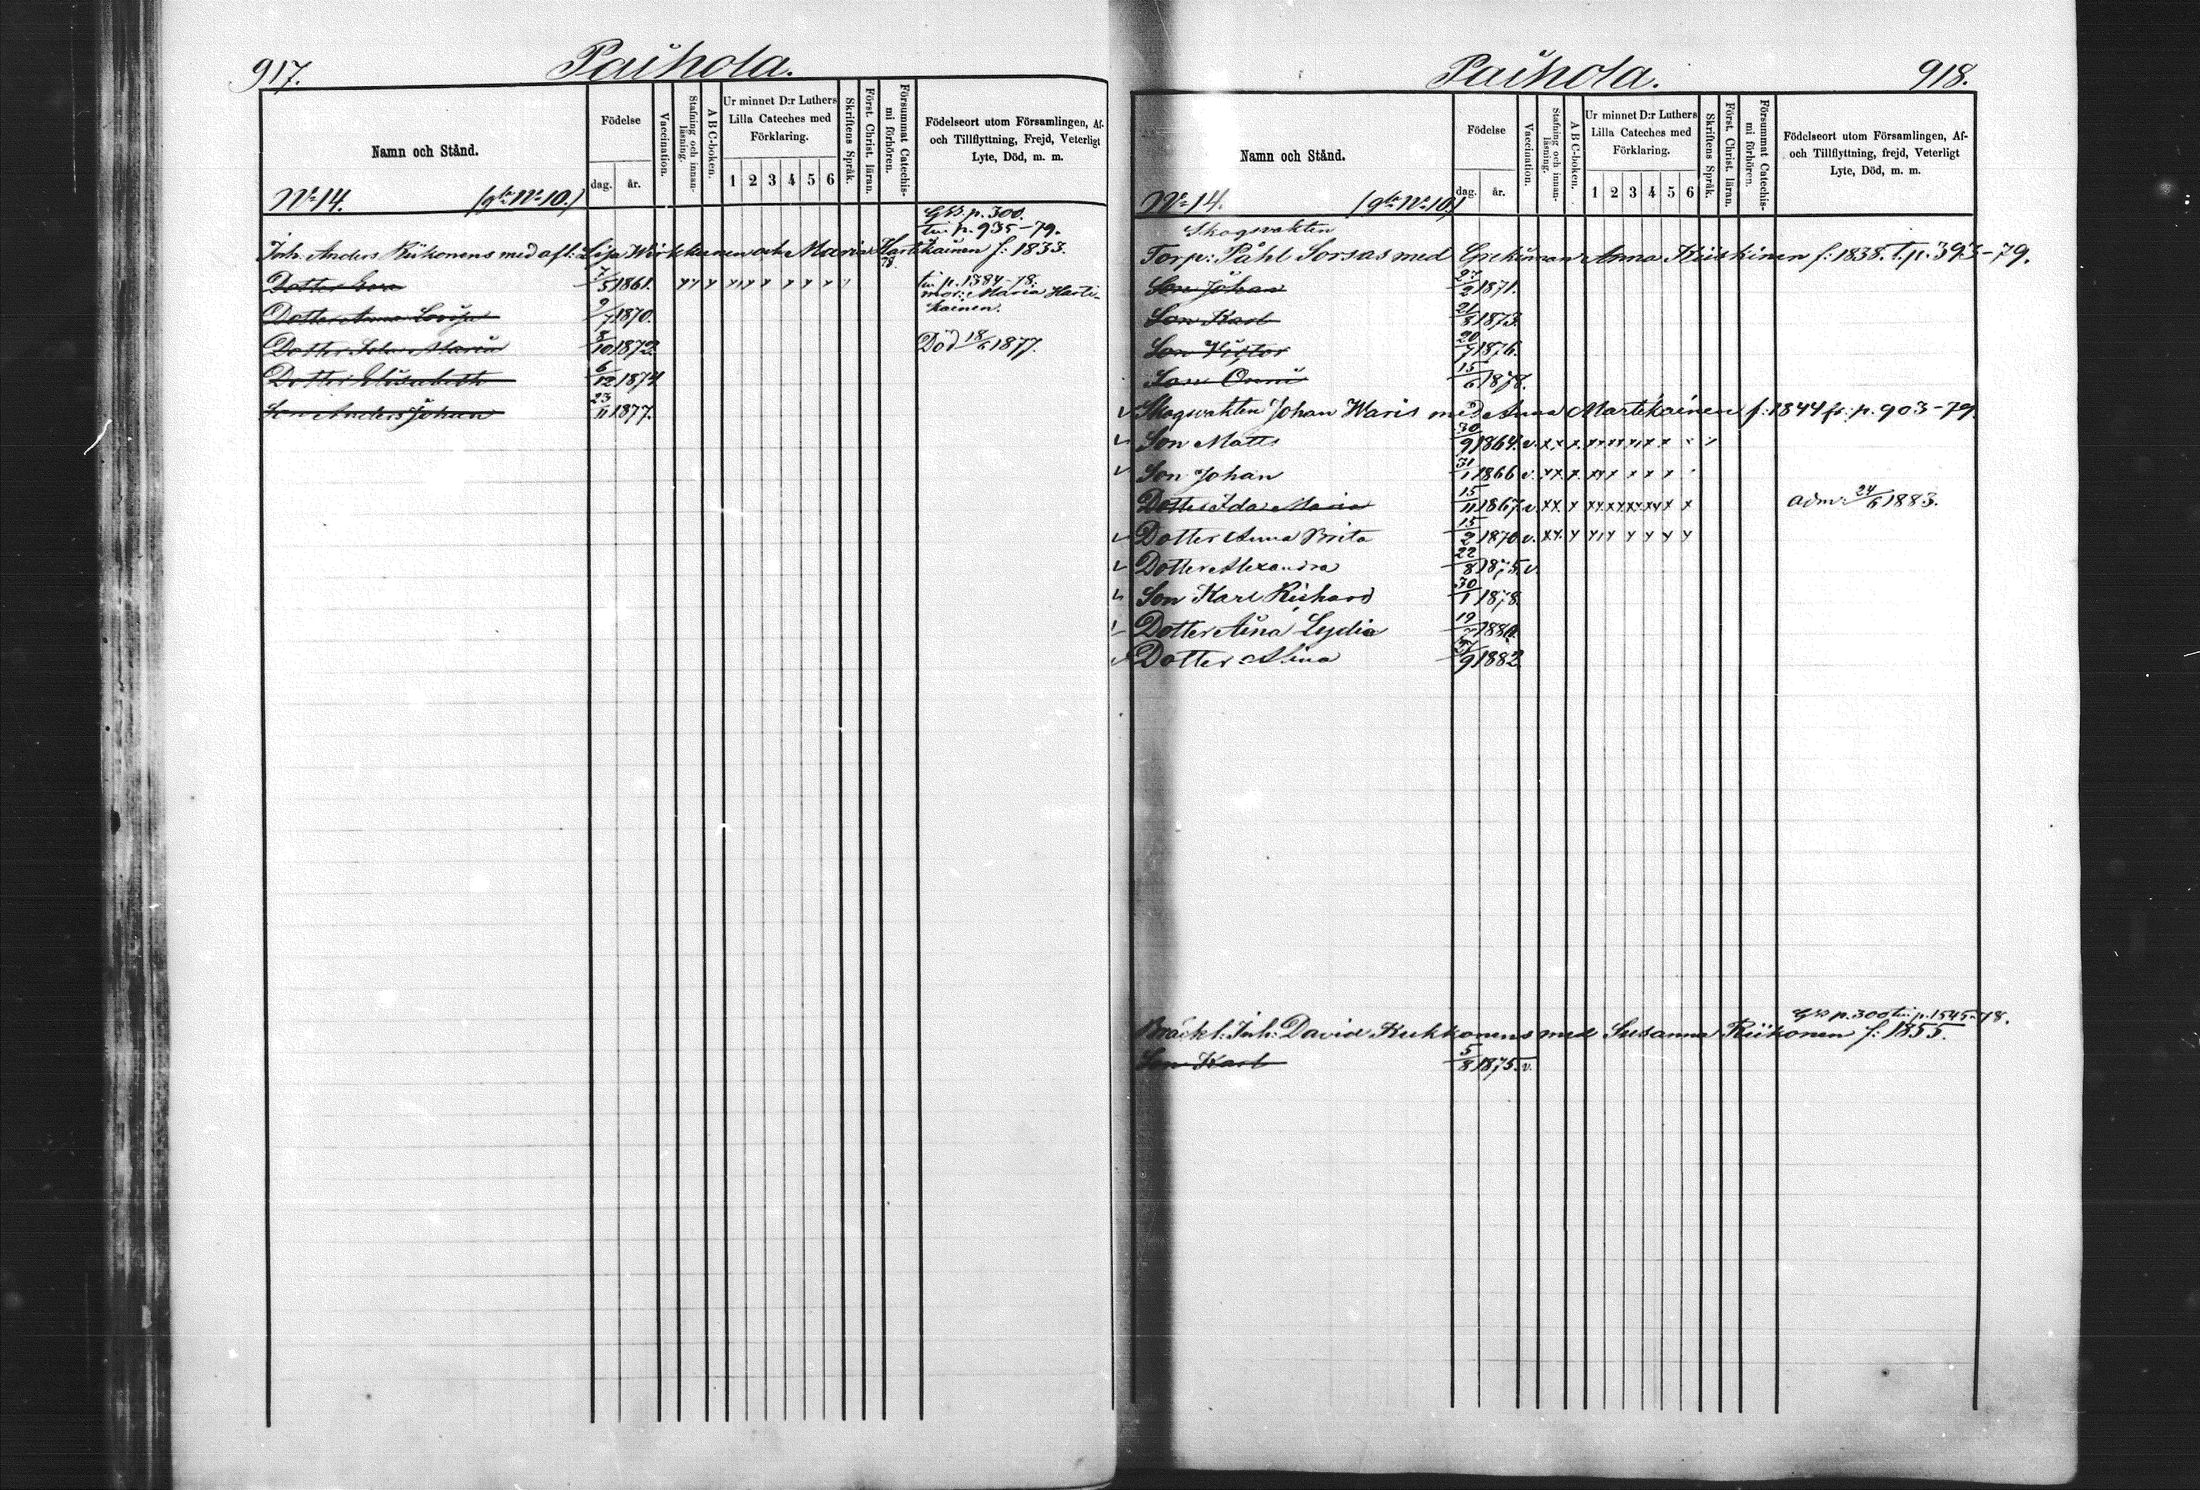 917.
Paihola.
Namn och Stånd.
Födelse
dag. år.
Vaccination.
Stafning och innan-läsning.
A B C-boken.
Ur minnet D:r Luthers Lilla Cateches med Förklaring.
1 2 3 4 5 6
Skriftens Språk.
Först. Christ. läran.
Försummat Catechis-mi förhören.
Födelseort utom Församlingen, Af- och Tillflyttning, Frejd, Veterligt Lyte, Död, m. m.
No 14. (gla No 10.)
p. 300.
p. 935-79.
Inh. Anders Riikonens med afl: Lisa Wirkkunen och Maria Hartikainen f: 1833.
78.
Dotter Eva 7/5 1861. p. 1384-78.
Dotter Anna Lovisa 9/7 1870. mor: Maria Hartikainen.
Dotter Ida Maria 8/10 1872. Död 18/6 1877.
Dotter Elisabeth 6/12 1874
Son Anders Johan 23/11 1877.
Paihola.
918.
Namn och Stånd.
Födelse
dag. år.
Vaccination.
Stafning och innan-läsning.
A B C-boken.
Ur minnet D:r Luthers Lilla Cateches med Förklaring.
1 2 3 4 5 6
Skriftens Språk.
Först. Christ. läran.
Försummat Catechis-mi förhören.
Födelseort utom Församlingen, Af- och Tillflyttning, frejd, Veterligt Lyte, Död, m. m.
No 14. (gla No 10.)
Skogsvakten
Torp: Påhl Sorsas med Anna Kiiskinen f: 1838. t. p. 393-79.
Son Johan 27/2 1871.
Son Karl 21/8 1873.
Son Victor 20/7 1876.
Son Onni 15/6 1878.
v Skogsvakten Johan Waris med Anna Martikainen f: 1844 fr. p. 903-79.
v Son Matts 30/9 1864. v. xx x.
v Son Johan 31/1 1866 v. xx x.
Dotter Ida Maria 15/11 1867. v. xx x adm: 24/6 1883.
v Dotter Anna Brita 15/2 1870. v. xx x
v Dotter Alexandra 22/8 1875. v.
v Son Karl Richard 30/1 1878.
v Dotter Aina Lydia 19/7 1880.
v Dotter Alina 27/9 1882
p. 300 p. 1545-78.
Bräckl: Inh: David Kukkonens med Susanna Riikonen f: 1855.
Son Karl 5/8 1875. v.